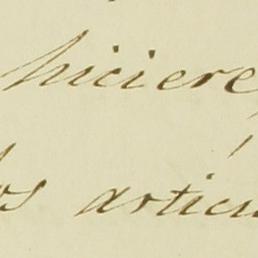 hiciere
os articu